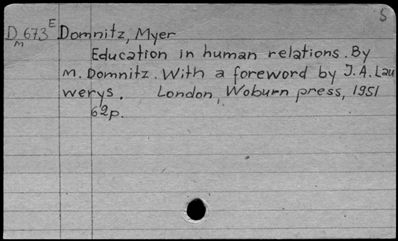 S
D 673 E Domnitz, Myer
m
Education in human relations. By
M. Domnitz. With a foreword by J.A. Lau
werys. London, Woburn press, 1951
62p.